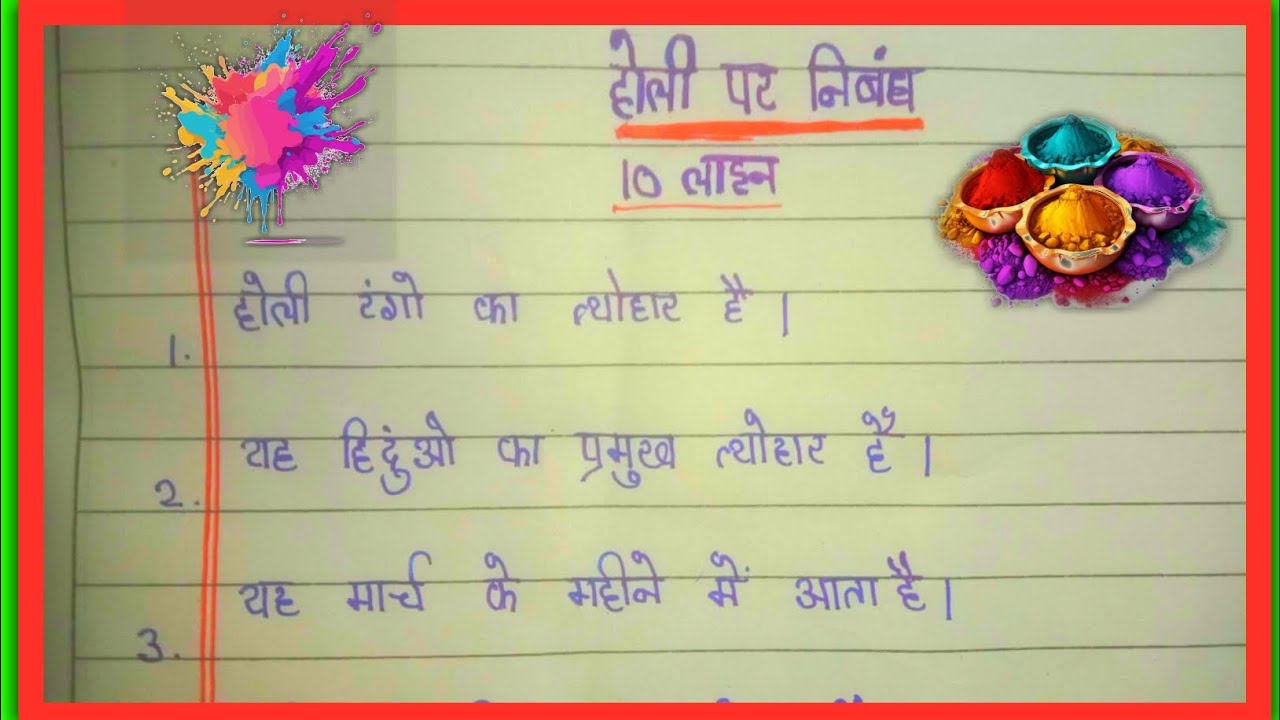 होली पर निबंध
10 लाइन
1. होली रंगो का त्योहार है।
2. यह हिदुंओ का प्रमुख त्योहार है।
3. यह मार्च के महीने में आता है।